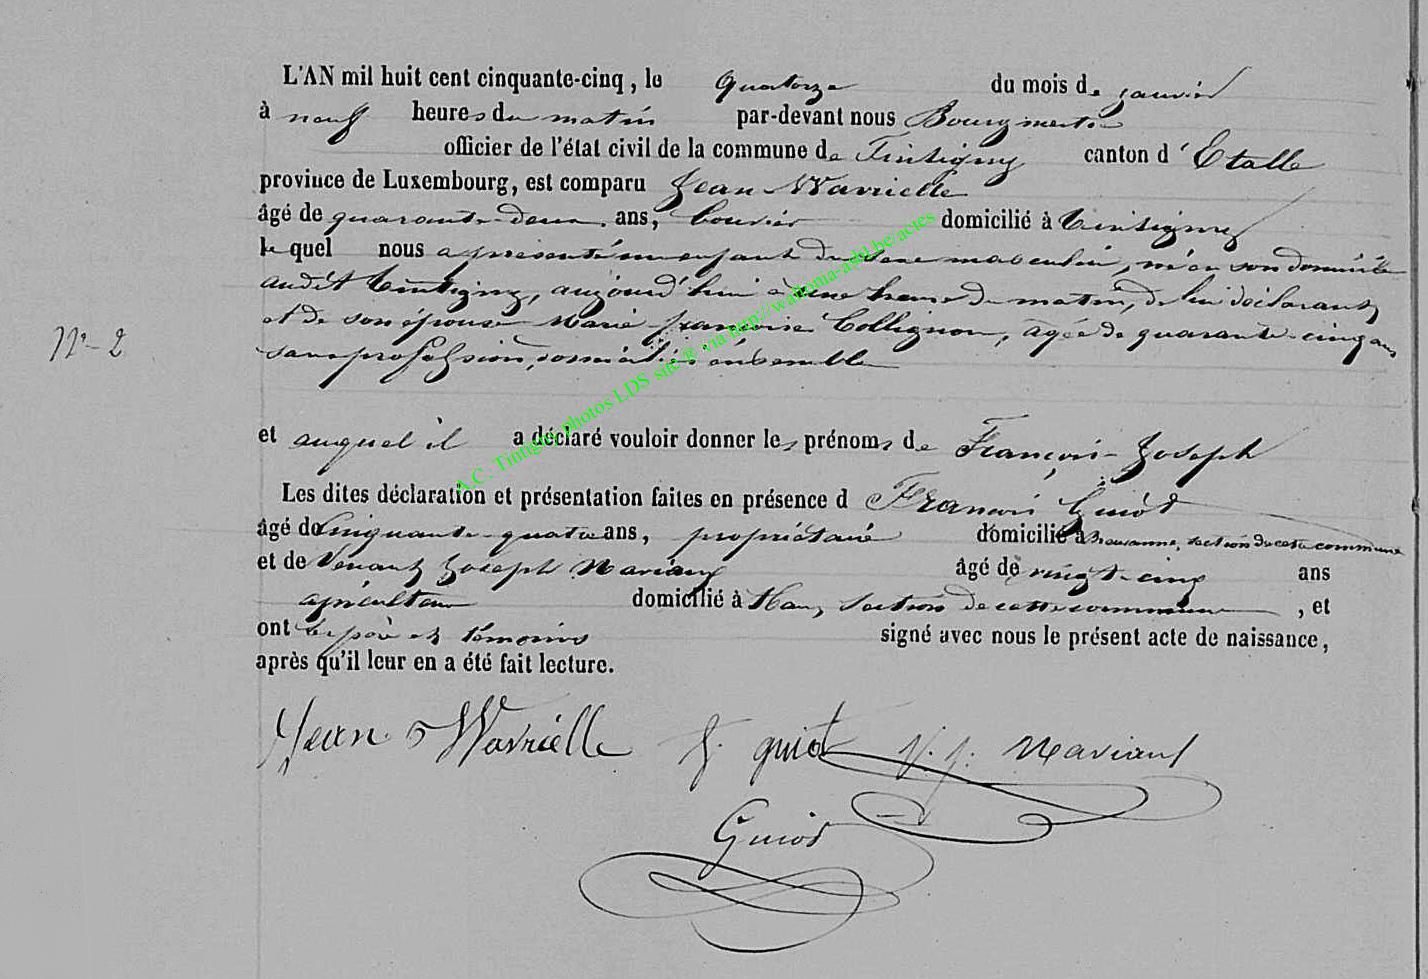 L'AN mil huit cent cinquante-cinq, le quatorze du mois de janvier
à neuf heures du matin par-devant nous Bourgmestre
officier de l'état civil de la commune de Tintigny canton d'Etalle
province de Luxembourg, est comparu Jean Wavrielle
âgé de quarante-deux ans, bouvier domicilié à Tintigny
lequel nous a présenté un enfant du sexe masculin, né en son domicile
audit Tintigny, aujourd'hui à une heure du matin, de lui déclarant
et de son épouse Marie françoise Collignon, âgée de quarante-cinq ans
N°- 2
sans profession, domiciliés ensemble
et auquel il a déclaré vouloir donner les prénoms de François-Joseph
Les dites déclaration et présentation faites en présence d François Guiot
âgé de cinquante-quatre ans, propriétaire domicilié à section de cette commune
et de Venant Joseph Naviaux âgé de vingt-cinq ans
domicilié à Han, section de cette commune, et
ont les père et témoins signé avec nous le présent acte de naissance,
après qu'il leur en a été fait lecture.
Jean Wavrielle f. guiot V. J. Naviaux
Guiot
A.C. Tintigny photos LDS site ® via http://wafloma-asbl.be/actes